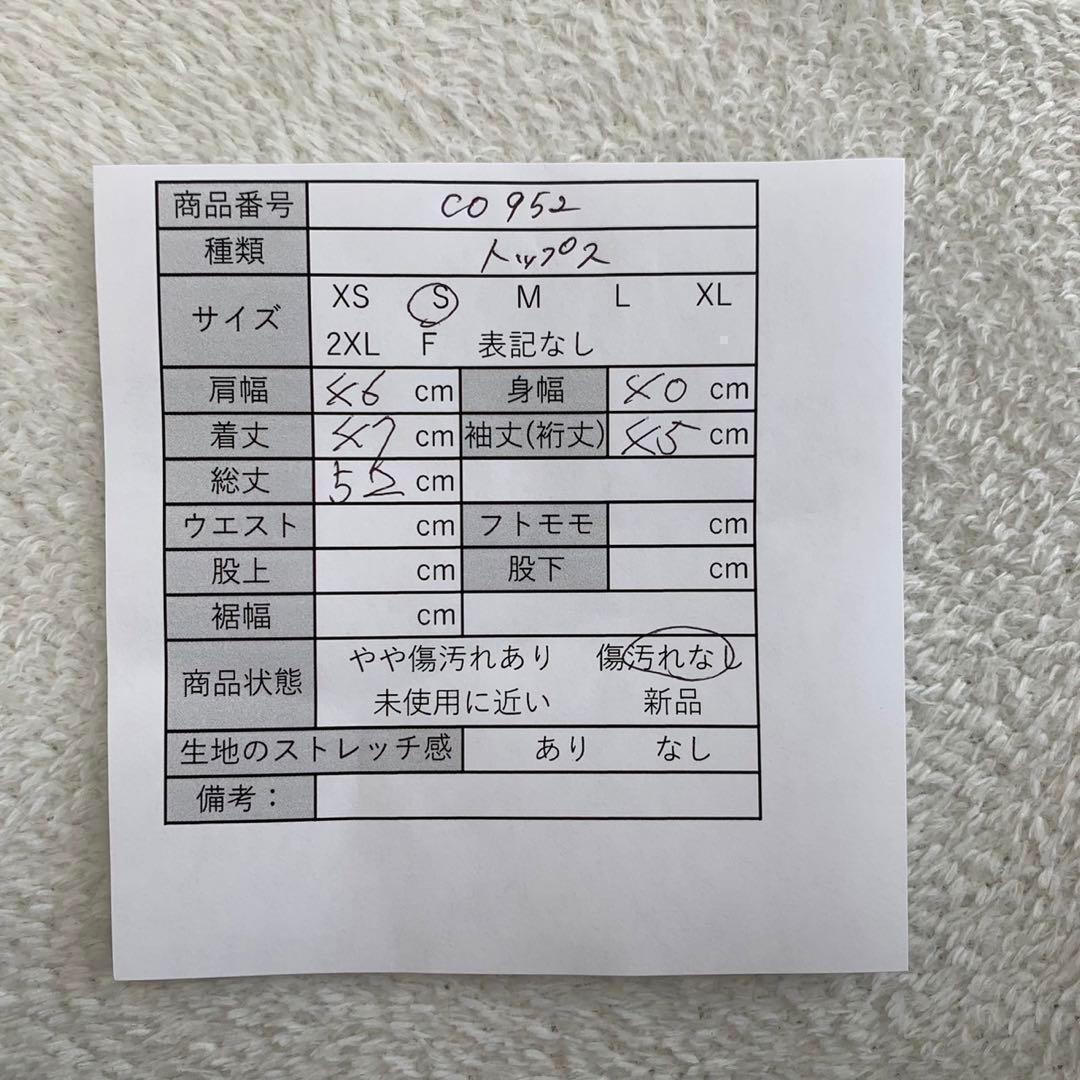 商品番号 CO952
種類 トップス
サイズ XS S M L XL
2XL F 表記なし
肩幅 46 cm 身幅 40 cm
着丈 47 cm 袖丈(裄丈) 45 cm
総丈 52 cm
ウエスト cm フトモモ cm
股上 cm 股下 cm
裾幅 cm
商品状態 やや傷汚れあり 傷汚れなし
未使用に近い 新品
生地のストレッチ感 あり なし
備考：